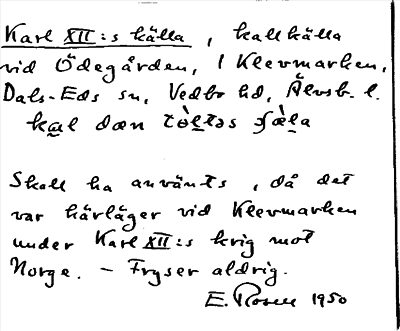 Karl XII:s källa, kallkälla
vid Ödegården, 1 Klevmarken,
Dals-Eds sn, Vedbo hd, Älvsb. l.
Skall ha använts, då det
var härläger vid Klevmarken
under Karl XII:s krig mot
Norge. – Fryser aldrig.
E. Rosell 1950